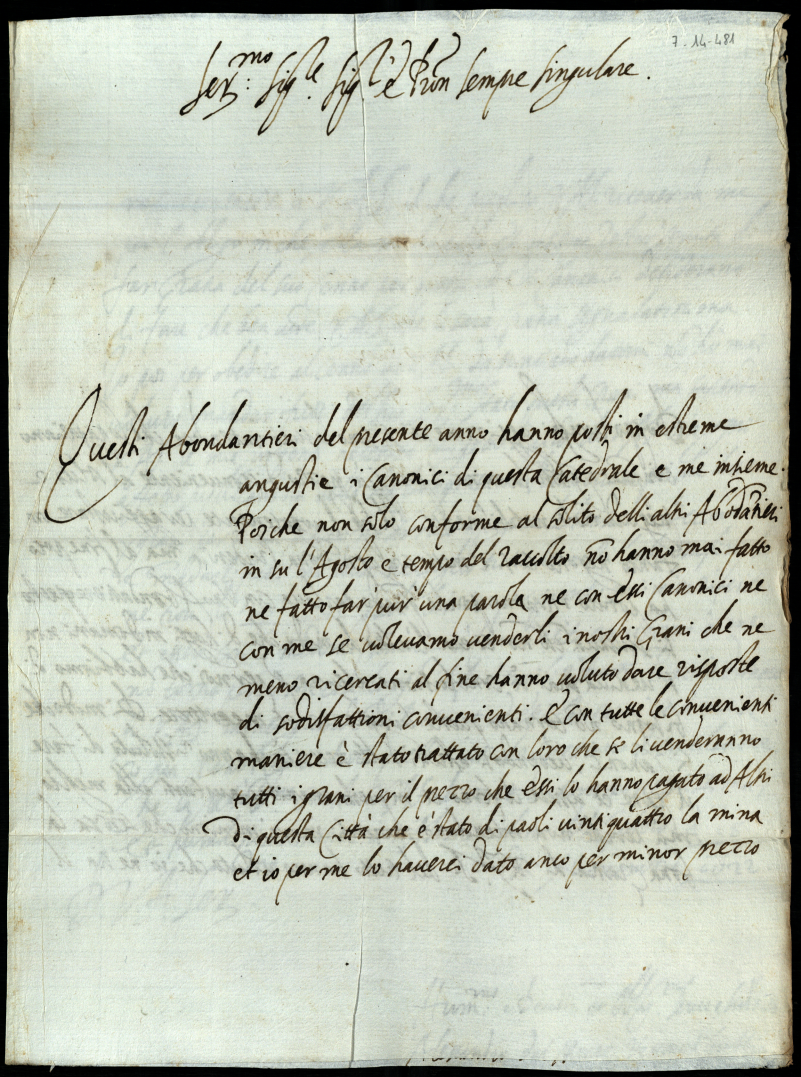 7-14-481
Ser.mo Sig.re Sig.r e Pron sempre singulare.
Questi Abondantieri del presente anno hanno posti in estreme
angustie i Canonici di questa Catedrale e me insieme.
Poiche non solo conforme al solito delli altri Abōdātieri
in su l'Agosto e tempo del raccolto nō hanno mai fatto
ne fatto far pur una parola ne con essi Canonici ne
con me se volevamo venderli i nostri Grani che ne
meno ricercati al fine hanno voluto dare risposte
di sodisfattioni convenienti. E con tutte le convenienti
maniere è stato trattato con loro che se li venderanno
tutti i grani per il prezzo che essi lo hanno pagato ad Altri
di questa Città che è stato di paoli vinaquattro la mina
et io per me lo haverei dato anco per minor prezzo